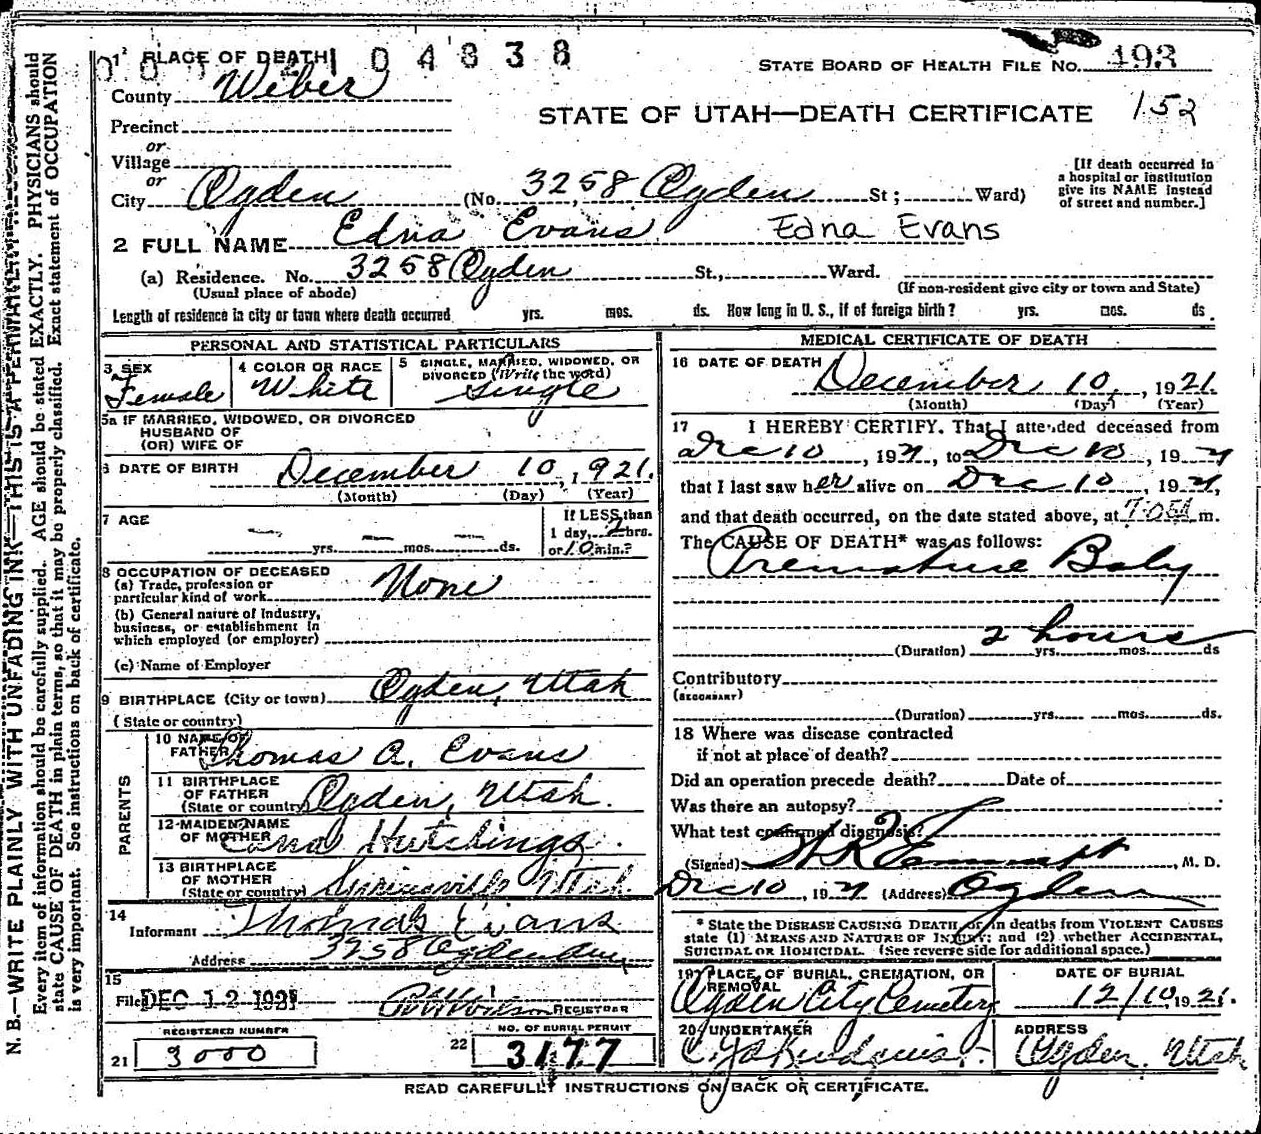 N. B.—WRITE PLAINLY WITH UNFADING INK—THIS IS A PERMANENT
Every item of information should be carefully supplied. AGE should be stated EXACTLY. PHYSICIANS should
state CAUSE OF DEATH in plain terms, so that it may be properly classified. Exact statement of OCCUPATION
is very important. See instructions on back of certificate.
1 PLACE OF DEATH 104838
STATE BOARD OF HEALTH FILE No. 493
County Weber
STATE OF UTAH—DEATH CERTIFICATE 152
Precinct
or
Village
or
City Ogden (No. 3258 Ogden St; Ward)
[If death occurred in
a hospital or institution
give its NAME instead
of street and number.]
2 FULL NAME Edna Evans Edna Evans
(a) Residence. No. 3258 Ogden St., Ward.
(Usual place of abode) (If non-resident give city or town and State)
Length of residence in city or town where death occurred yrs. mos. ds. How long in U. S., if of foreign birth? yrs. mos. ds.
PERSONAL AND STATISTICAL PARTICULARS
3 SEX Female
4 COLOR OR RACE White
5 SINGLE, MARRIED, WIDOWED, OR
DIVORCED (Write the word)
Single
5a IF MARRIED, WIDOWED, OR DIVORCED
HUSBAND OF
(OR) WIFE OF
6 DATE OF BIRTH December 10, 1921.
(Month) (Day) (Year)
7 AGE — yrs. — mos. — ds.
If LESS than
1 day, 2 hrs.
or 10 min.?
8 OCCUPATION OF DECEASED
(a) Trade, profession or
particular kind of work None
(b) General nature of Industry,
business, or establishment in
which employed (or employer)
(c) Name of Employer
9 BIRTHPLACE (City or town) Ogden, Utah
(State or country)
PARENTS
10 NAME OF
FATHER Thomas A. Evans
11 BIRTHPLACE
OF FATHER
(State or country) Ogden, Utah.
12 MAIDEN NAME
OF MOTHER Hutchings.
13 BIRTHPLACE
OF MOTHER
(State or country) Springville Utah.
14
Informant Thomas Evans
Address 3258 Ogden Ave
15
Filed DEC 12 1921 REGISTRAR
REGISTERED NUMBER
21 3000
NO. OF BURIAL PERMIT
22 3177
MEDICAL CERTIFICATE OF DEATH
16 DATE OF DEATH December 10, 1921.
(Month) (Day) (Year)
17 I HEREBY CERTIFY, That I attended deceased from
Dec 10, 1921, to Dec 10, 1921
that I last saw her alive on Dec 10, 1921,
and that death occurred, on the date stated above, at m.
The CAUSE OF DEATH* was as follows:
Premature Baby
2 hours
(Duration) yrs. mos. ds
Contributory
(SECONDARY)
(Duration) yrs. mos. ds.
18 Where was disease contracted
if not at place of death?
Did an operation precede death? Date of
Was there an autopsy?
What test confirmed diagnosis?
(Signed) , M. D.
Dec 10, 1921 (Address) Ogden
* State the DISEASE CAUSING DEATH, or in deaths from VIOLENT CAUSES
state (1) MEANS AND NATURE OF INJURY; and (2) whether ACCIDENTAL,
SUICIDAL OR HOMICIDAL. (See reverse side for additional space.)
19 PLACE OF BURIAL, CREMATION, OR
REMOVAL
Ogden City Cemetery
DATE OF BURIAL
12/10 1921.
20 UNDERTAKER
ADDRESS
Ogden, Utah
READ CAREFULLY INSTRUCTIONS ON BACK OF CERTIFICATE.